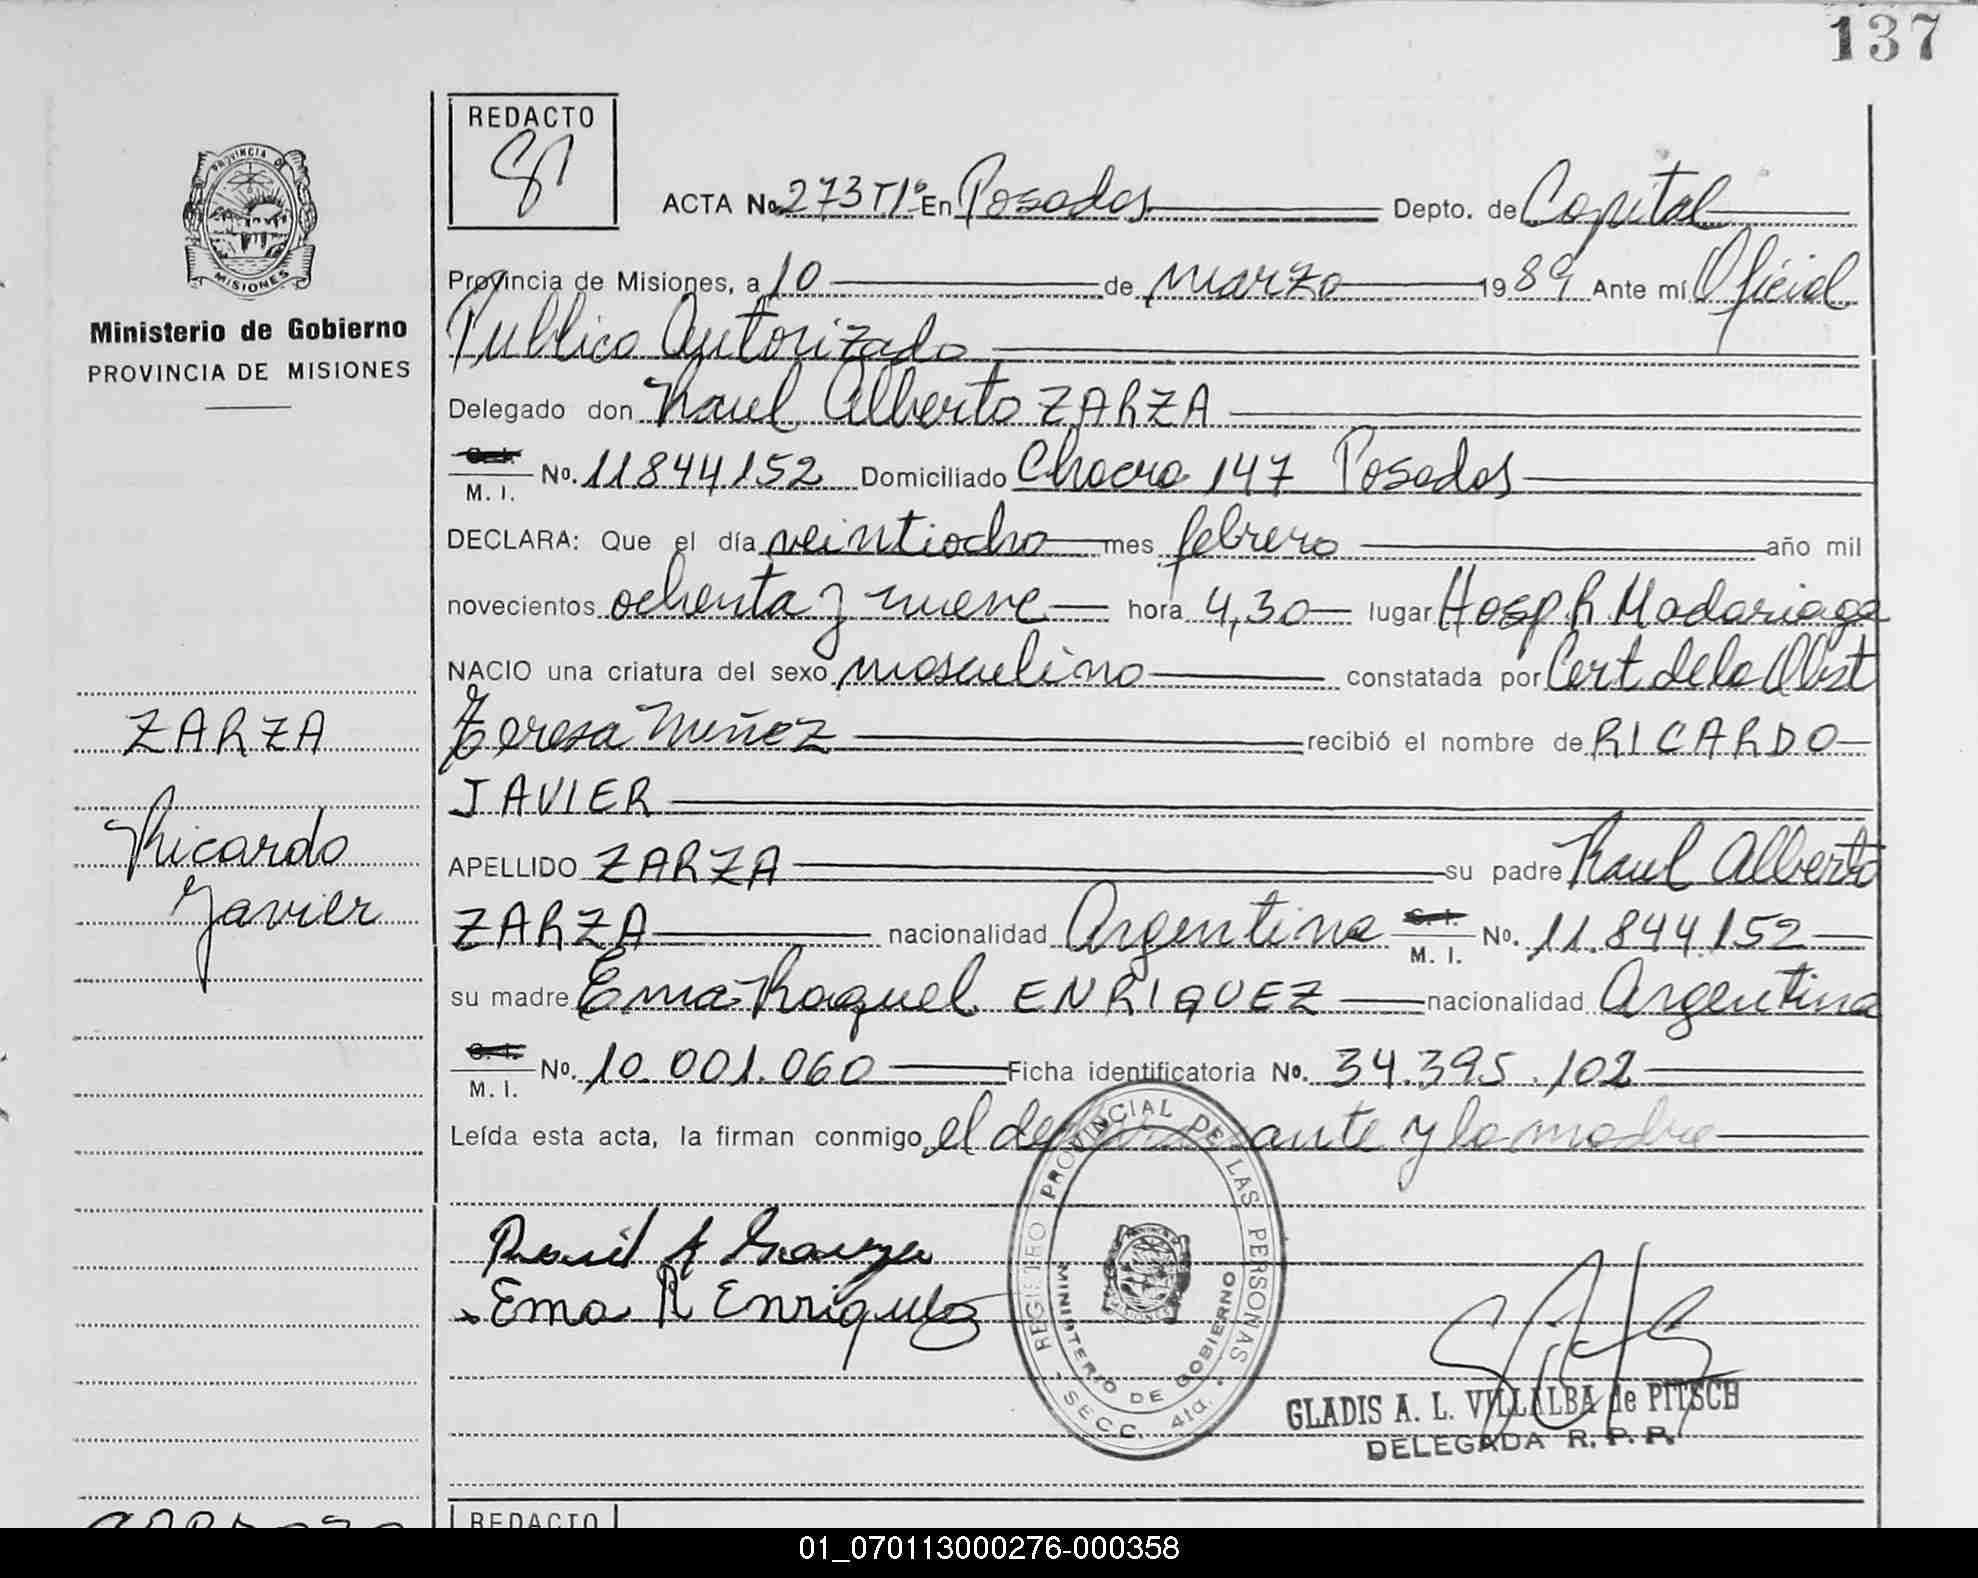 137
REDACTO
ACTA No. 273 T1º En Posadas Depto. de Capital
Provincia de Misiones, a 10 de marzo 1989 Ante mí Oficial
Publico Autorizado
Delegado don Raul Alberto ZARZA
M. I. No. 11844152 Domiciliado Chacra 147 Posadas
DECLARA: Que el día veintiocho mes febrero año mil
novecientos ochenta y nueve hora 4,30 lugar Hosp R. Madariaga
NACIO una criatura del sexo masculino constatada por Cert de la Obst
Teresa Muñoz recibió el nombre de RICARDO
JAVIER
APELLIDO ZARZA su padre Raul Alberto
ZARZA nacionalidad Argentina C. I. M. I. No. 11.844.152
su madre Ema Raquel ENRIQUEZ nacionalidad Argentina
C. I. M. I. No. 10.001.060 Ficha identificatoria No. 34.395.102
Leída esta acta, la firman conmigo el declarante y la madre
PROVINCIA DE
MISIONES
Ministerio de Gobierno
PROVINCIA DE MISIONES
ZARZA
Ricardo
Javier
Ema R Enriquez
REGISTRO PROVINCIAL DE LAS PERSONAS
MINISTERIO DE GOBIERNO
SECC. 41a.
GLADIS A. L. VILLALBA de PITSCH
DELEGADA R. P. P.
REDACTO
01_070113000276-000358